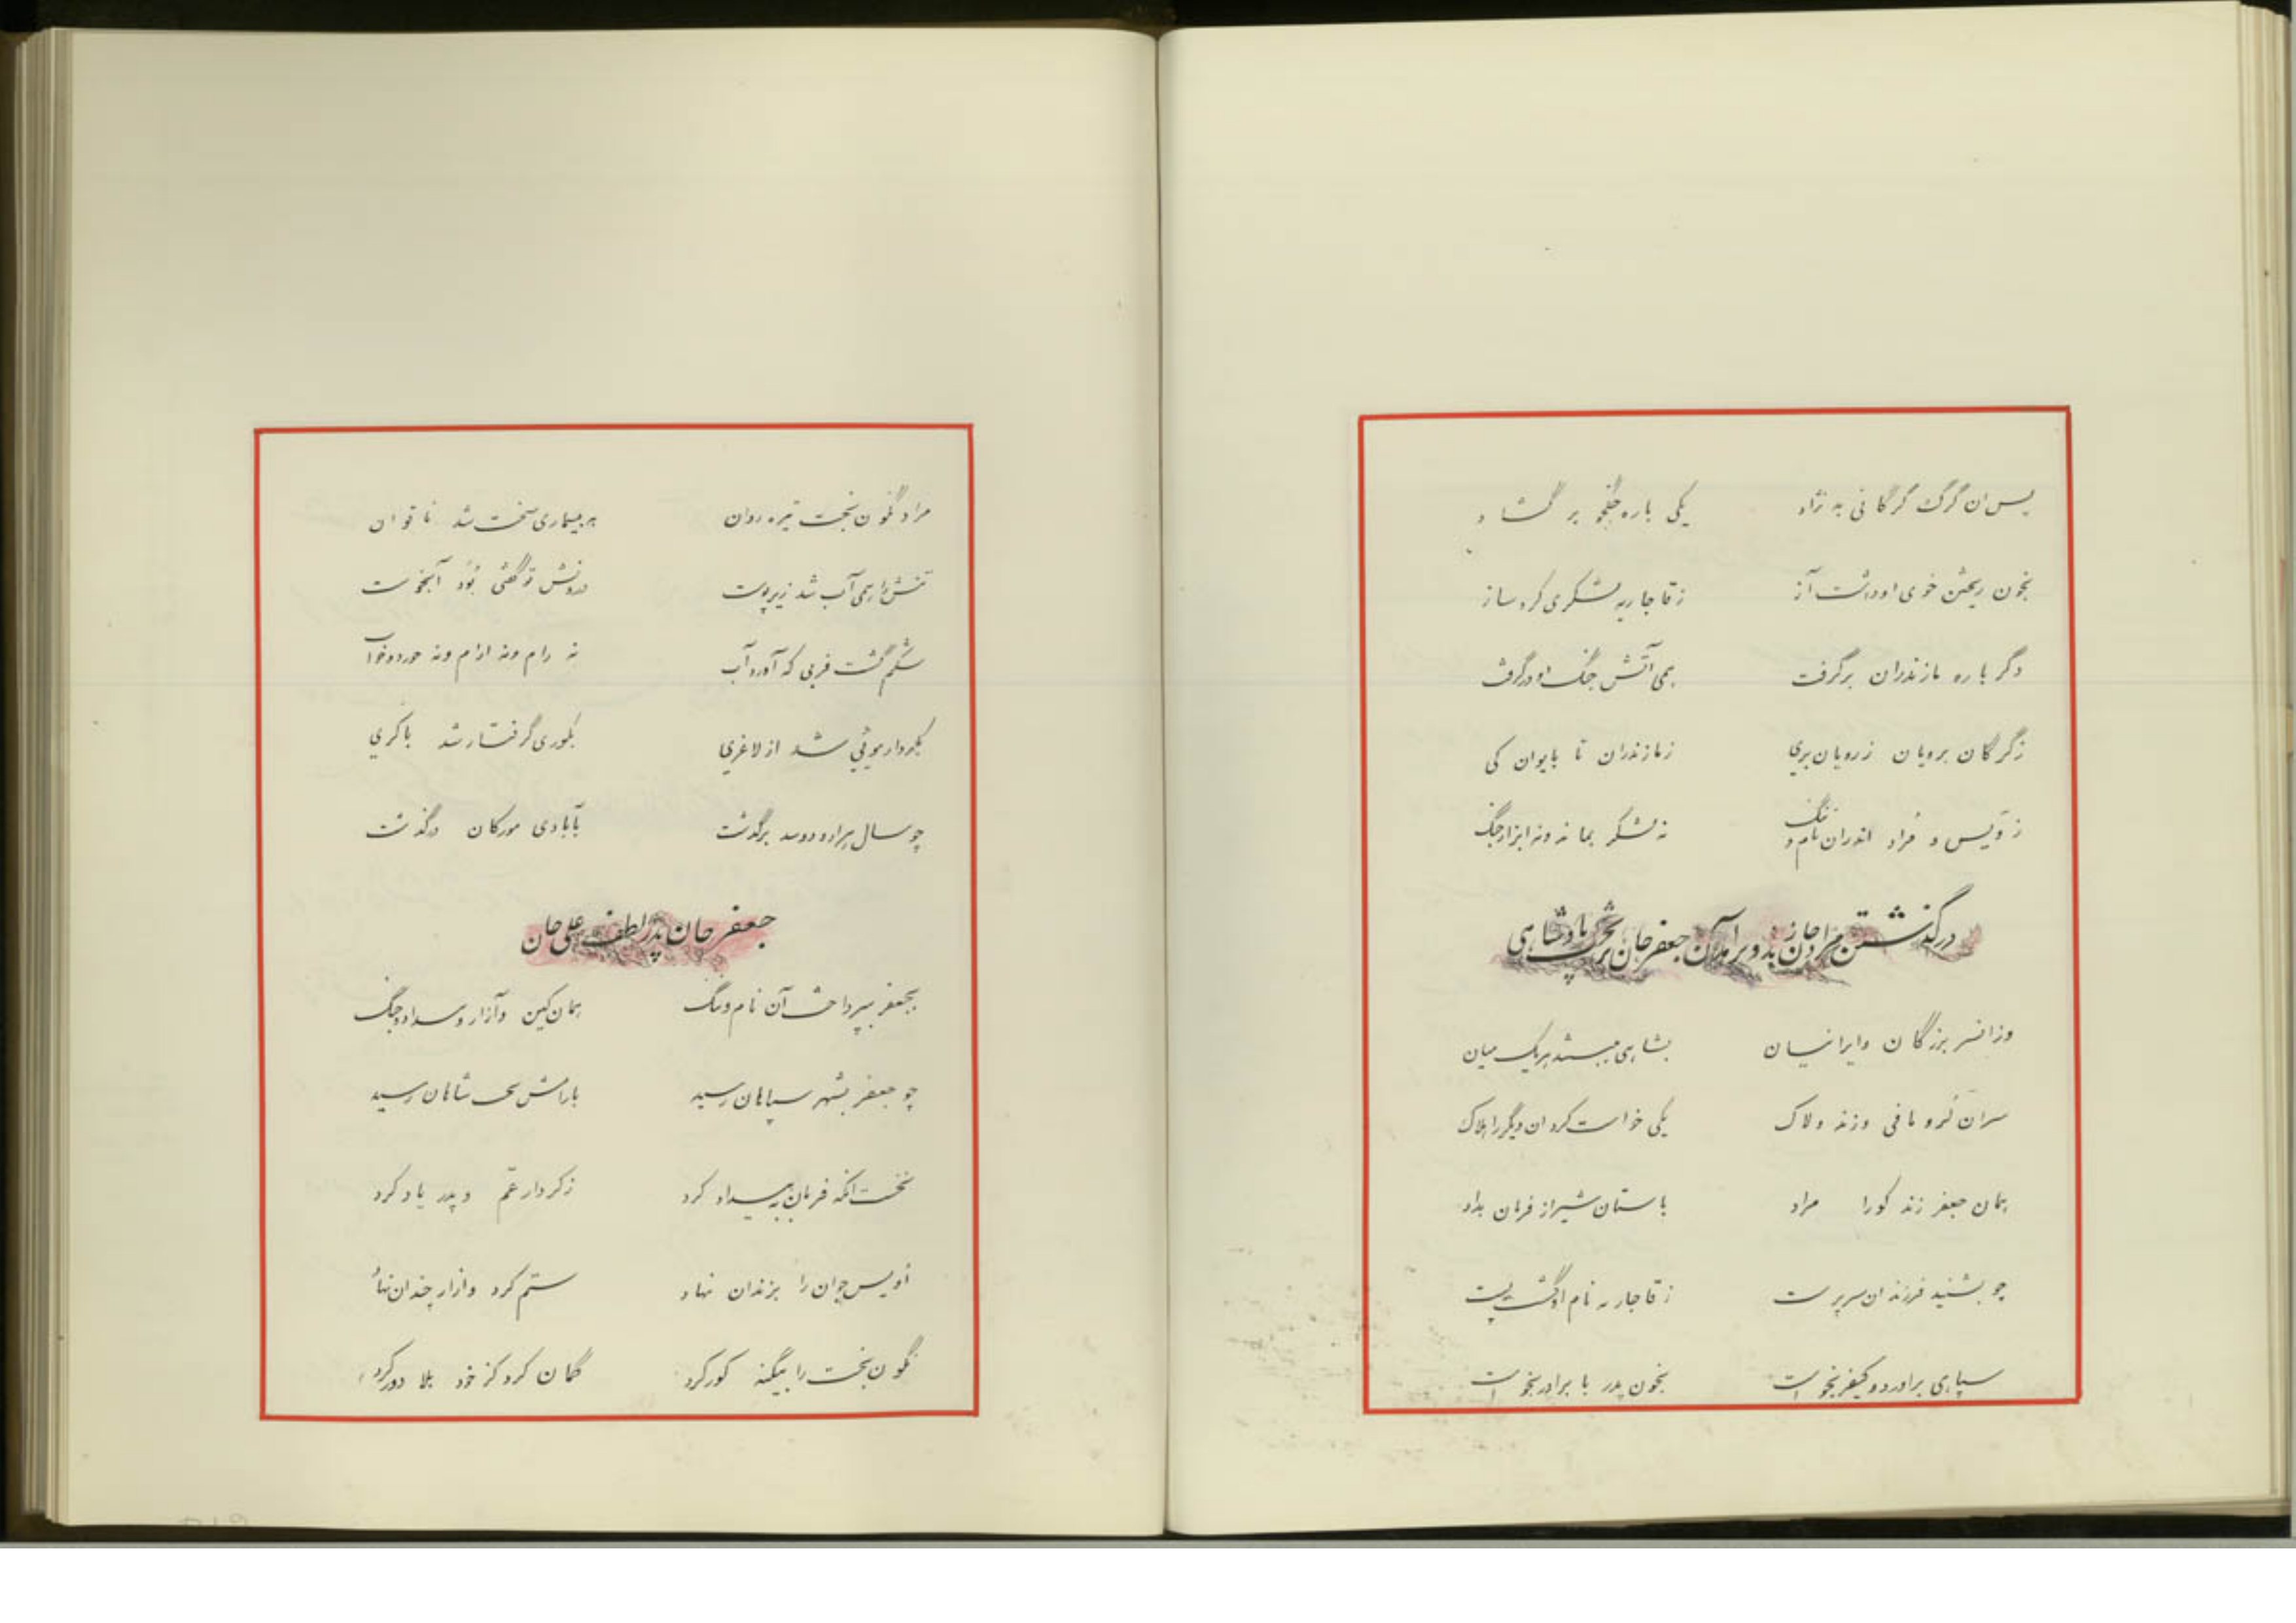 پس ان گرگ گرگانی به نژاد یکی باره جنگجو بر گشاد
بخون ریختن خوی او داشت آز زقاجاریه لشکری کرد ساز
دگر باره مازندران برگرفت همی آتش جنگ او درگرفت
زگرگان برویان زرویان بری زمازندران تا بایوان کی
ز اویس و مراد اندران نام و ننگ نه لشکر بماند و نه ابزار جنگ
درگذشتن مرادخان زند و برآمدن جعفرخان بر تخت پادشاهی
وزانسر بزرگان و ایرانیان بشاهی ببستند هریک میان
سران کرو مافی و زند و لاک یکی خواست کردان دیگر را هلاک
همان جعفر زند کورا مراد باستان شیراز فرمان بداد
چو بشنید فرزند ان سرپرست زقاجاریه نام او گشت پست
سپاهی براورد و کیفر بخواست بخون پدر با برادر بخواست
مراد نگون بخت تیره روان به بیماری سخت شد ناتوان
تنش را همی آب شد زیر پوست درونش تو گفتی بود آبخوست
شکم گشت فربی که آورد آب نه رام و نه ارام و نه خورد و خواب
بکردار موئی شد از لاغری بکوری گرفتار شد با کری
چو سال هزار و دوسد برگذشت بآبادی مورکان درگذشت
جعفرخان پدر لطفعلی خان
بجعفر بپرداخت آن نام و ننگ همان کین و آزار و بیداد و جنگ
چو جعفر بشهر سپاهان رسید بارامش تخت شاهان رسید
نخست انکه فرمان به بیداد کرد زکردار عم و پدر یاد کرد
اویس جوان را بزندان نهاد ستم کرد و ازار چندان نهاد
نگون بخت را بیگنه کور کرد گمان کرد کز خود بلا دور کرد